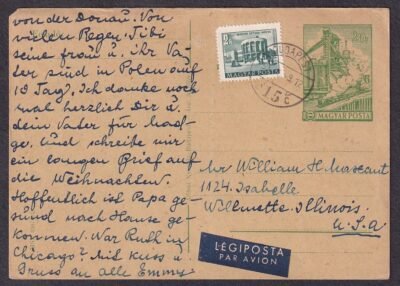 von der Donau. Von
vielen Regen. Tibi
seine frau u. ihr Va-
ter sind in Polen auf
19 Tag. Ich danke noch
mal herzlich Dir u.
dein Vater für
und schreibe mir
ein langen Brief auf
die Weihnachten.
Hoffentlich ist Papa ge-
sund nach Hause ge-
kommen. War Ruth in
Chicago? Mit Kuss u
Gruss an alle Emmy
MAGYAR POSTA
BUDAPEST
15E
MAGYAR POSTA
Mr William H.
1124. Isabelle
Willmette. Illinois.
U.S.A
LÉGIPOSTA
PAR AVION